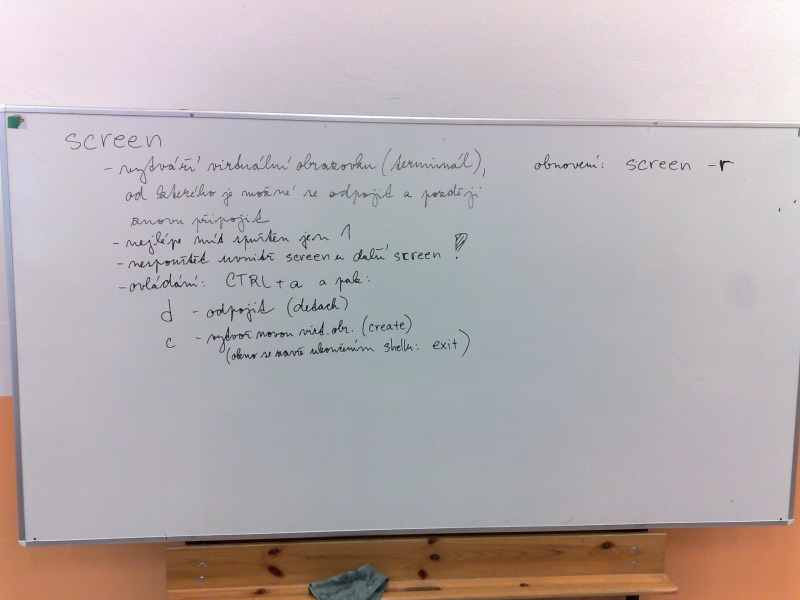 screen
- vytváří virtuální obrazovku (terminál),
od kterého je možné se odpojit a později
znovu připojit
- nejlépe mít spuštěn jen 1
- nespouštět uvnitř screenu další screen !
- ovládání: CTRL + a a pak:
d - odpojit (detach)
c - vytvoř novou virt. obr. (create)
(okno se zavře ukončením shellu: exit)
obnovení: screen -r